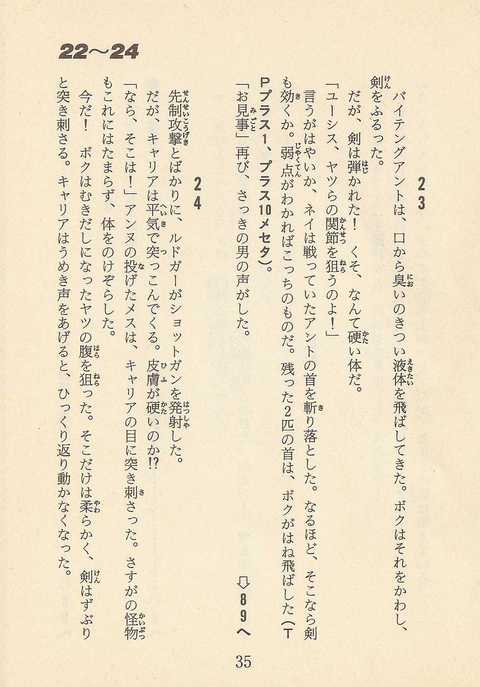 22〜24
23
バイテングアントは、口から臭いのきつい液体を飛ばしてきた。ボクはそれをかわし、
剣をふるった。
だが、剣は弾かれた! くそ、なんて硬い体だ。
「ユーシス、ヤツらの関節を狙うのよ!」
言うがはやいか、ネイは戦っていたアントの首を斬り落とした。なるほど、そこなら剣
も効くか。弱点がわかればこっちのものだ。残った2匹の首は、ボクがはね飛ばした(T
Pプラス1、プラス10メセタ)。
「お見事」再び、さっきの男の声がした。
⇩89へ
24
先制攻撃とばかりに、ルドガーがショットガンを発射した。
だが、キャリアは平気で突っこんでくる。皮膚が硬いのか!?
「なら、そこは!」アンヌの投げたメスは、キャリアの目に突き刺さった。さすがの怪物
もこれにはたまらず、体をのけぞらした。
今だ! ボクはむきだしになったヤツの腹を狙った。そこだけは柔らかく、剣はずぶり
と突き刺さる。キャリアはうめき声をあげると、ひっくり返り動かなくなった。
35